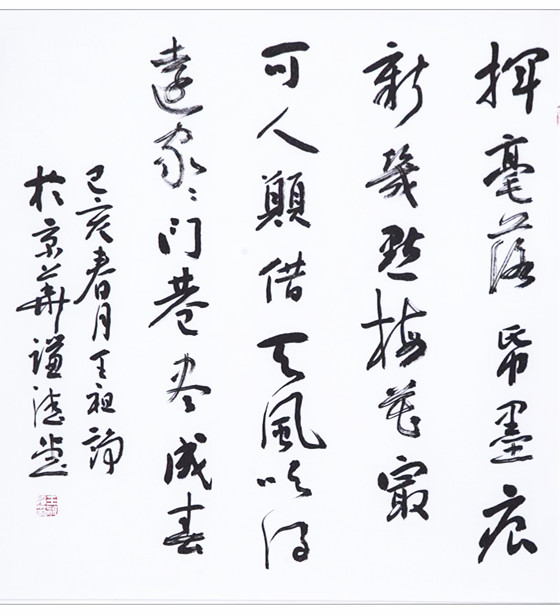 揮毫落帋墨痕
新幾點梅花㝡
可人願借天風吹得
遠家々門巷尽成春
己亥春月王祖
於京華謙德堂